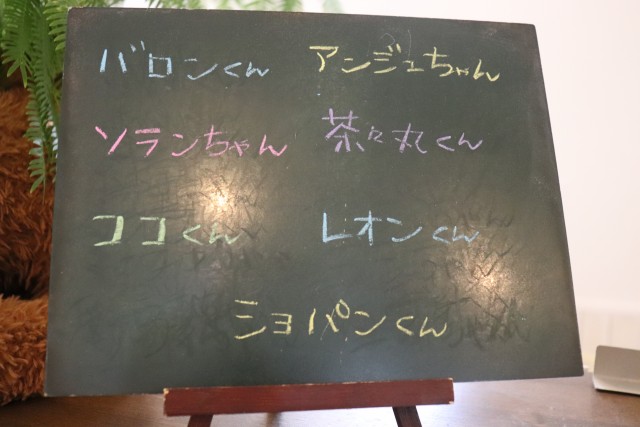 バロンくん アンジュちゃん
ソランちゃん 茶々丸くん
ココくん レオンくん
ショパンくん